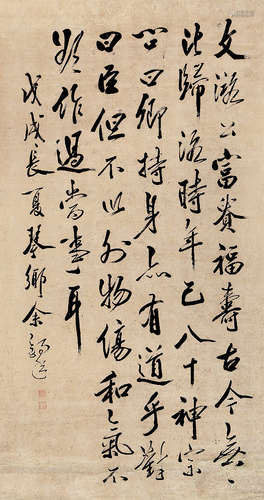 文潞公富贵福寿古今无
比归洛时年已八十神宗
公曰卿持身亦有道乎對
曰臣但不以外物傷和氣不
敢作過當事耳
戊戌長夏琴鄉余